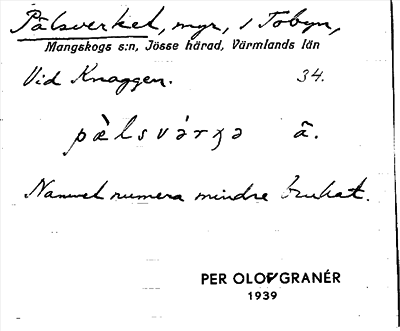 Pålsverket, myr, i Tobyn,
Mangskogs s:n, Jösse härad, Värmlands län
Vid Knaggen. 34.
pæ̀lsvàrʒə ã.
Namnet numera mindre brukat.
PER OLOF GRANÉR
1939